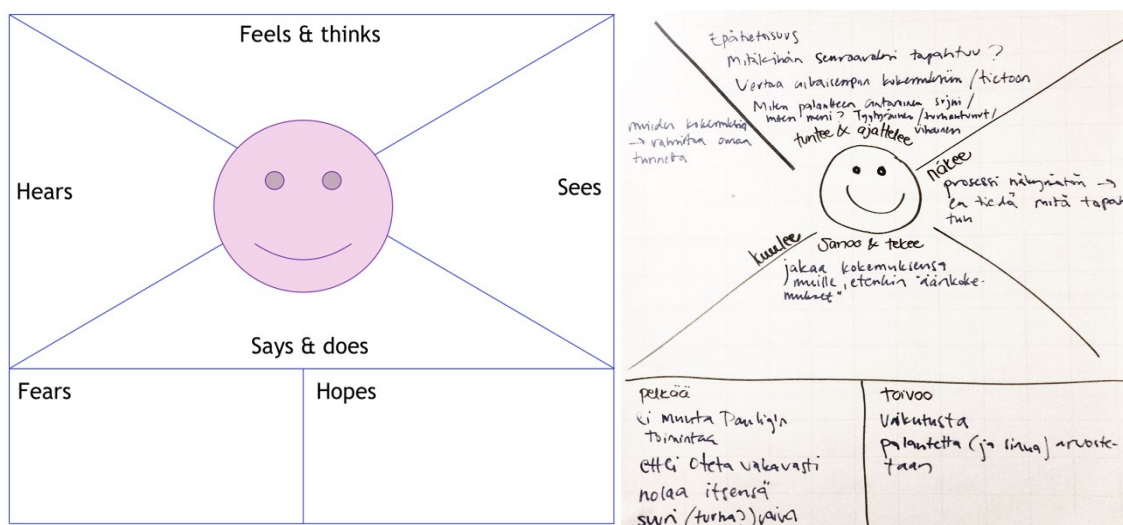 Feels & thinks
Hears
Sees
Says & does
Fears
Hopes
Epätietoisuus
Mitäköhän seuraavaksi tapahtuu?
Vertaa aikaisempiin kokemuksiin / tietoon
Miten palautteen antaminen sujui /
miten meni? Tyytyväinen / turhautunut /
vihainen
tuntee & ajattelee
muiden kokemuksia
→ vahvistaa omaa
tunnetta
näkee
prosessi näkymätön →
en tiedä mitä tapah
tuu
kuulee
Sanoo & tekee
jakaa kokemuksensa
muille, etenkin "äärikoke-
mukset"
pelkää
ei muuta Paulig'n
toimintaa
ettei oteta vakavasti
nolaa itsensä
suuri (turha?) vaiva
toivoo
vaikutusta
palautetta (ja sinua) arvoste-
taan